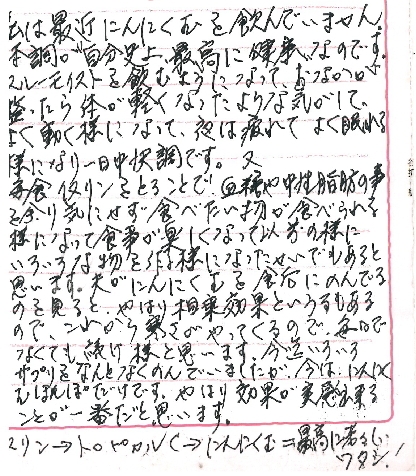 私は最近にんにくむを飲んでいません。
不調が自分史上最高に健康なのです。
スルーモリストを飲むようになって、おつながが
盛ったら体が軽くなったような気がして、
よく動く様になって、夜は疲れてよく眠れる
様になり一日中快調です。又
毎食後リンをとることで、血糖や中性脂肪の事
を余り気にせず食べたい物が食べられる
様になって食事が楽しくなって以前の様に
いろいろな物を作る様になったせいでもあると
思います。夫がにんにくむを食后にのんでる
のを見ると、やはり相乗効果というのもある
ので、これから寒さがやってくるので、毎日で
なくても続け様と思います。今迄いろいろ
サプリをなんとなくのんでいましたが、今は、にんにく
むほんぽだけです。やはり効果が実感出来る
ことが一番だと思います。
スリン→トロ→にんにくむ=最高に若々しい
ワタシ!